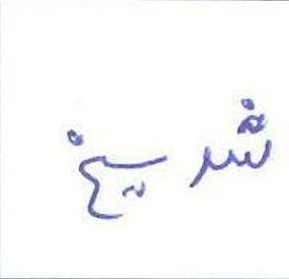 شريخ